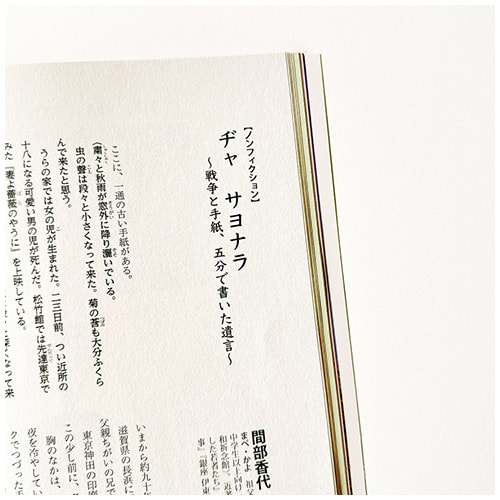 【ノンフィクション】
ヂャ サヨナラ
〜戦争と手紙、五分で書いた遺言〜
ここに、一通の古い手紙がある。
(粛々と秋雨が窓外に降り灑いでいる。
虫の聲は段々と小さくなって来た。菊の莟も大分ふくら
んで来たと思う。
うらの家では女の児が生まれた。二三日前、つい近所の
十八になる可愛い男の児が死んだ。松竹館では先達東京で
みた『妻よ薔薇のやうに』を上映している。
深くなって来
間部香代
まべ・かよ 祖父
中学生以上向け
和祈念館
した若者たち
事』『銀座 伊東
いまから約九十
滋賀県の長浜に
父親ちがいの兄で
東京神田の印刷
この少し前に、
胸のなかは、
夜を冷やしてい
クでつづった手